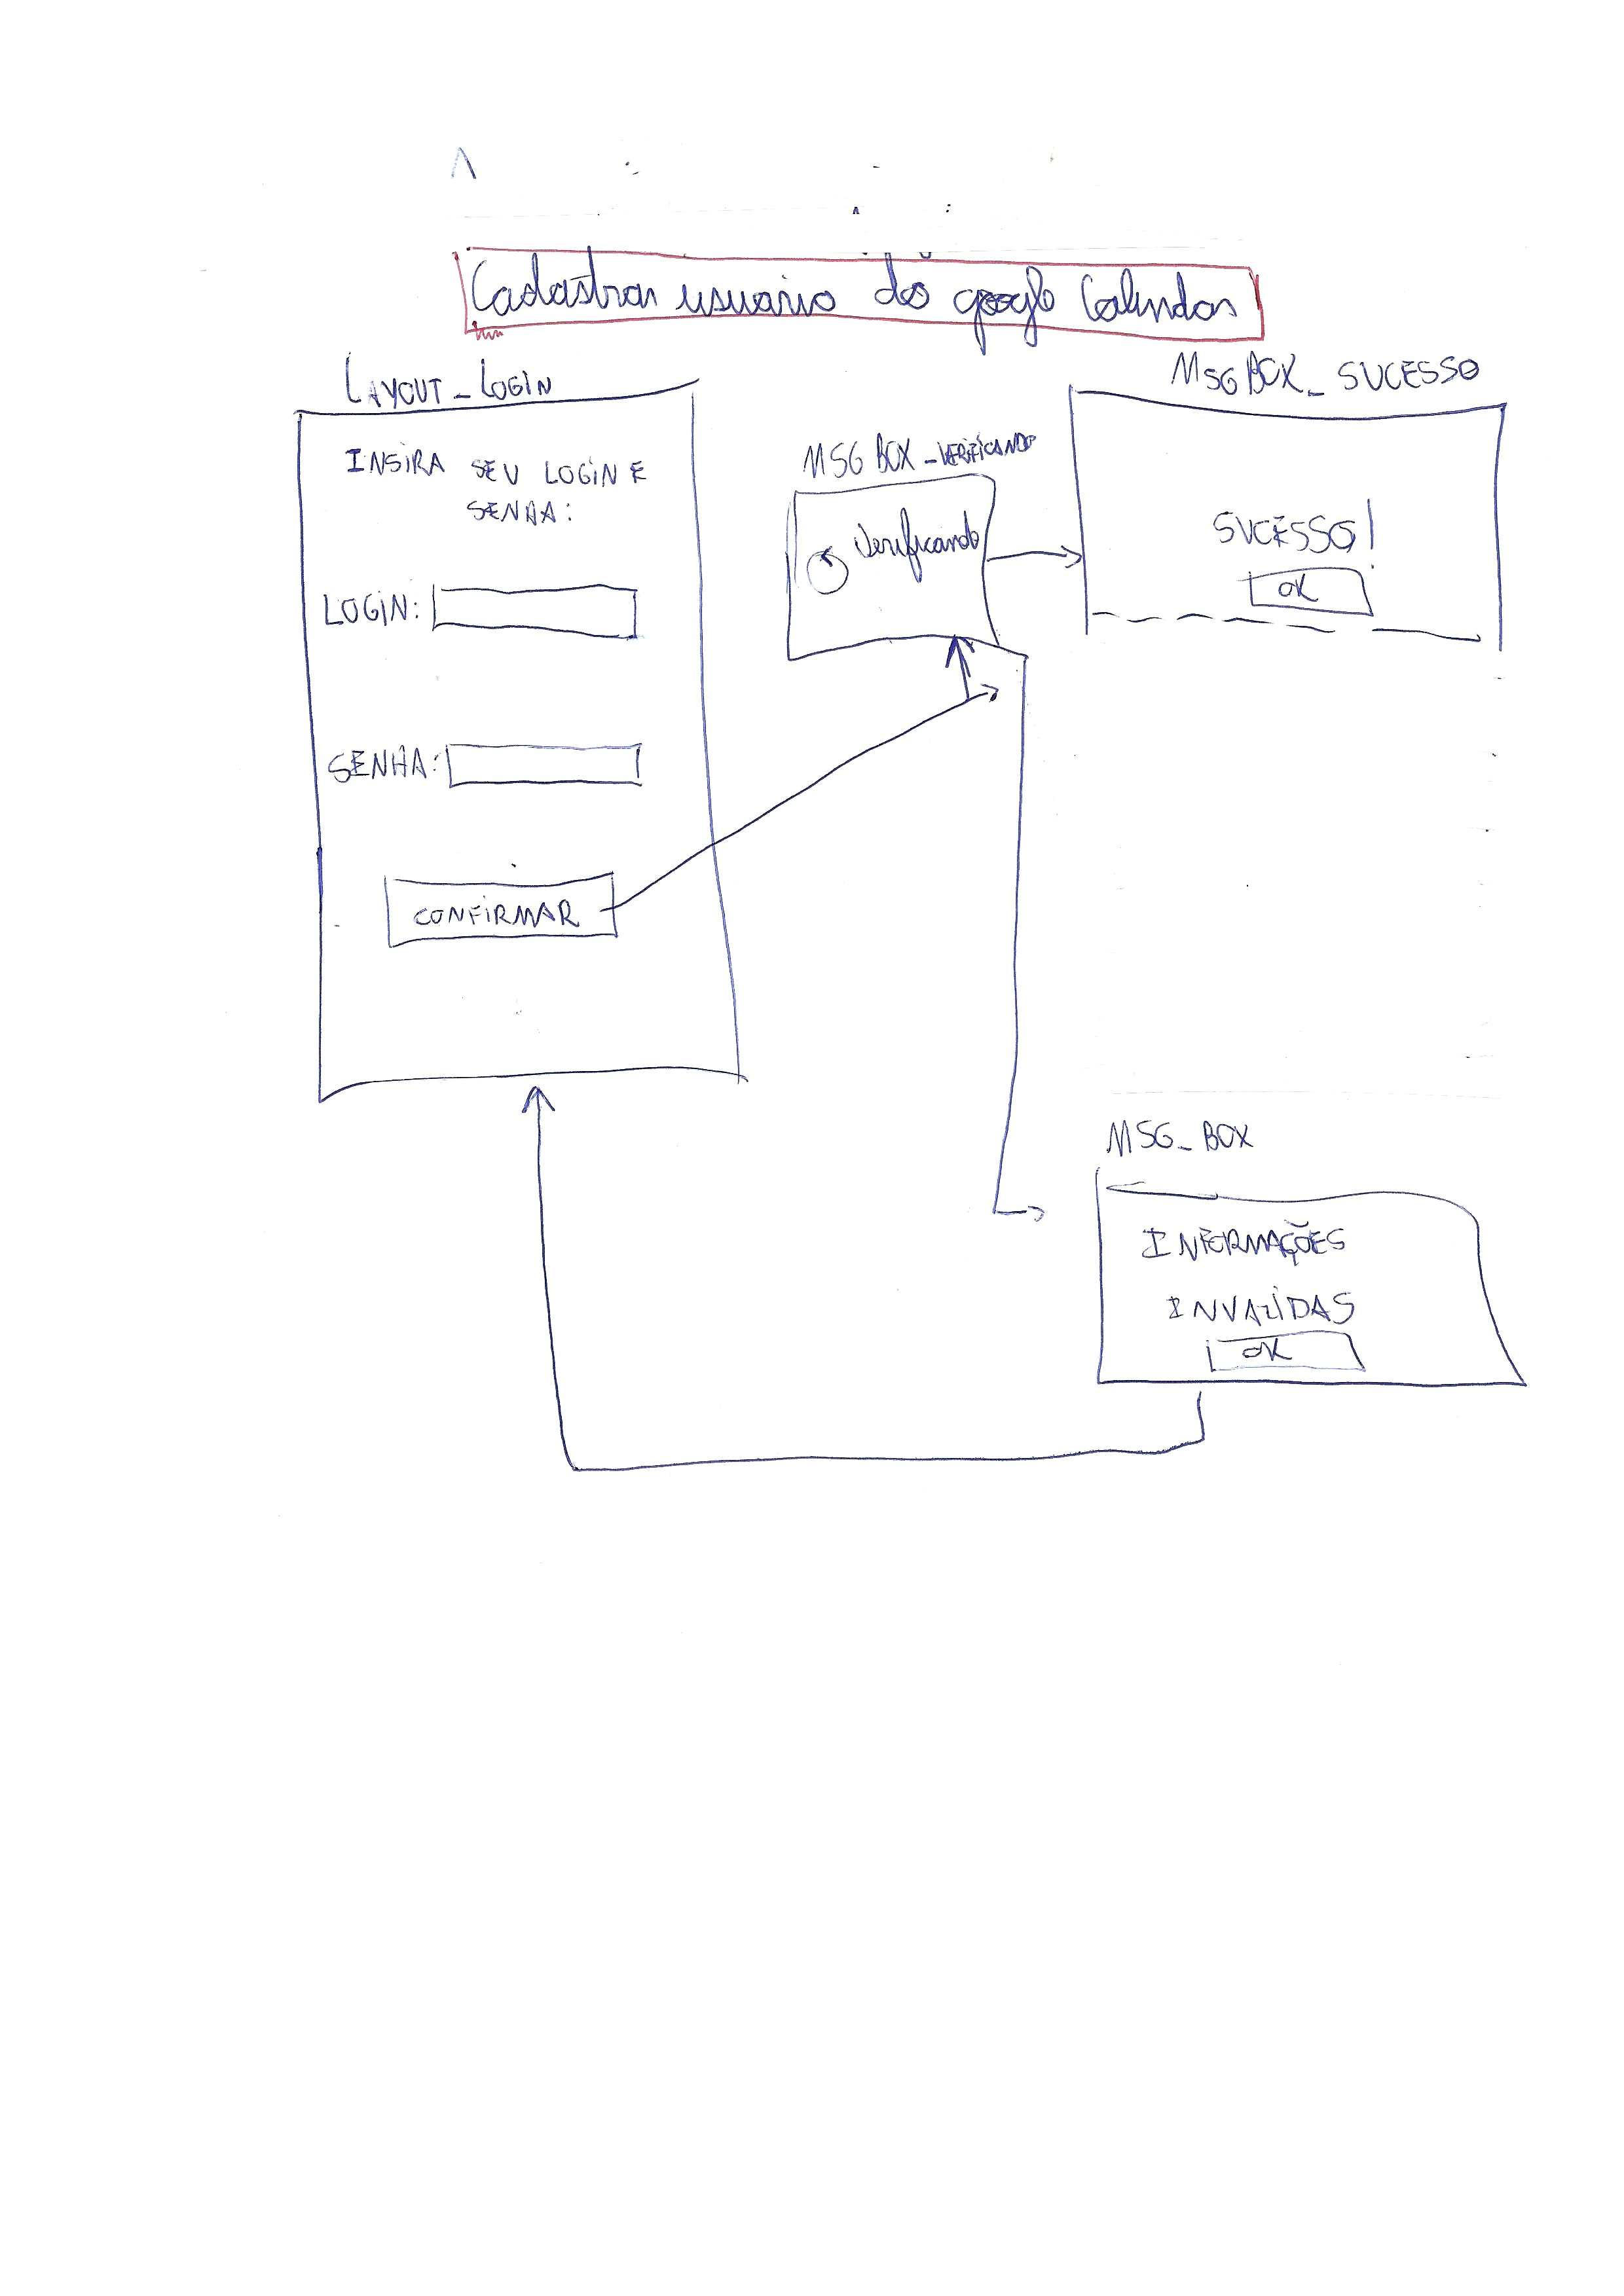 Cadastrar usuario do google Calendar
LAYOUT_LOGIN
INSIRA SEU LOGIN E
SENHA:
LOGIN:
SENHA:
CONFIRMAR
MSG BOX_VERIFICANDO
Verificando
MSG BOX_SUCESSO
SUCESSO!
OK
MSG_BOX
INFORMAÇÕES
INVALIDAS
OK